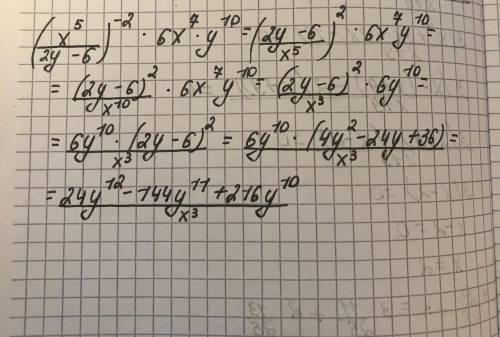 (x⁵/(2y-6))⁻² · 6x⁷ · y¹⁰ = ((2y-6)/x⁵)² · 6x⁷y¹⁰ =
= (2y-6)²/x¹⁰ · 6x⁷y¹⁰ = (2y-6)²/x³ · 6y¹⁰ =
= 6y¹⁰ · (2y-6)²/x³ = 6y¹⁰ · (4y²-24y+36)/x³ =
= (24y¹²-144y¹¹+216y¹⁰)/x³